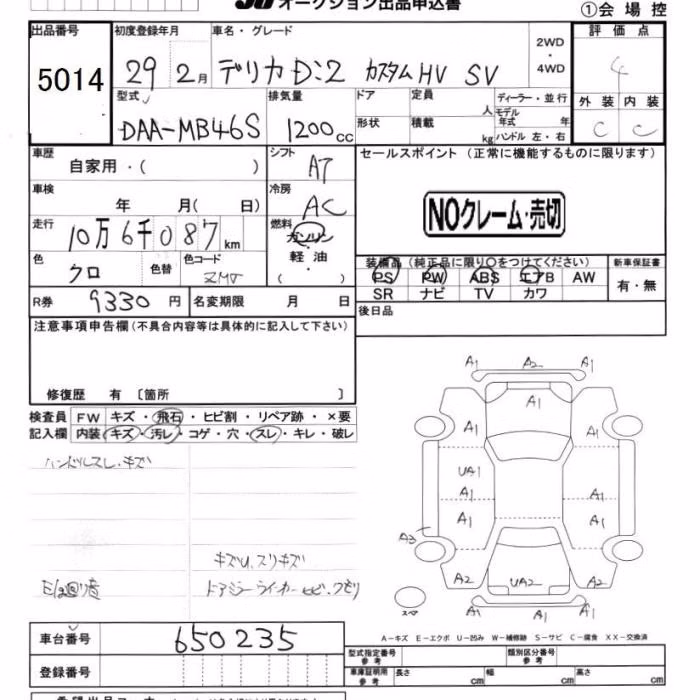 オークション出品申込書
①会場控
出品番号 初度登録年月 車名・グレード 評価点
5014 29年 2月 デリカD:2 カスタムHV SV 2WD・4WD 4
型式 排気量 ドア 定員 人 ディーラー・並行 外装 内装
DAA-MB46S 1200cc 形状 積載 kg モデル年式 年 ハンドル 左・右 C C
車歴 自家用・( ) シフト AT セールスポイント (正常に機能するものに限ります)
車検 年 月( 日) 冷房 AC
NOクレーム・売切
走行 10万6千087km 燃料 ガソリン・軽油・( )
色 クロ 色替 色コード ZMV
装備品 (純正品に限り○をつけてください) 新車保証書
PS PW ABS エアB AW 有・無
SR ナビ TV カワ
R券 9330円 名変期限 月 日 後日品
注意事項申告欄(不具合内容等は具体的に記入して下さい)
修復歴 有 〔箇所 〕
検査員 FW キズ・飛石・ヒビ割・リペア跡・×要
記入欄 内装 キズ・汚レ・コゲ・穴・スレ・キレ・破レ
ハンドルスレ・キズ
キズU、スリキズ
ドアミラーウインカーヒビ、クモリ
A1 A2 A1
A1
A1 A1
UA1
A1 A1
A1 A1
A3
A2 UA2 A2
スペア A1 A2 A1
A-キズ E-エクボ U-凹み W-補修跡 S-サビ C-腐食 XX-交換済
車台番号 650235
型式指定番号 参考 類別区分番号 参考
登録番号 車庫証明用 参考 長さ cm 幅 cm 高さ cm